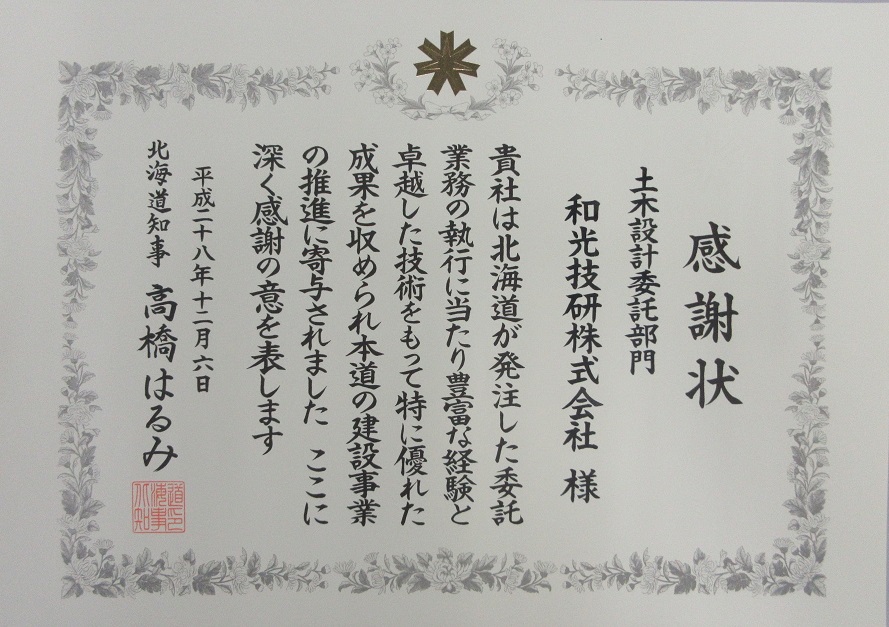 感謝状
土木設計委託部門
和光技研株式会社 様
貴社は北海道が発注した委託
業務の執行に当たり豊富な経験と
卓越した技術をもって特に優れた
成果を収められ本道の建設事業
の推進に寄与されました ここに
深く感謝の意を表します
平成二十八年十二月六日
北海道知事 高橋はるみ